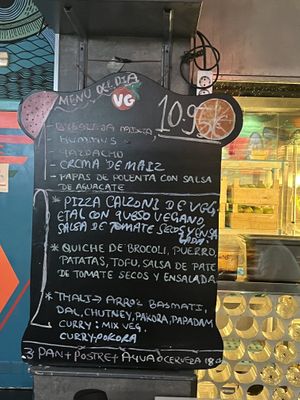 MENU DEL DIA
VG
10.95€
- HUMMUS
- GAZPACHO
- CREMA DE MAIZ
- PAPAS DE POLENTA CON SALSA
DE AGUACATE
* PIZZA CALZONI DE VEG
ETAL CON QUESO VEGANO
SALSA DE TOMATE SECOS Y ENSA
LADA.
* QUICHE DE BROCOLI, PUERRO,
PATATAS, TOFU, SALSA DE PATE
DE TOMATE SECOS Y ENSALADA
* THALI → ARROZ BASMATI,
DAL, CHUTNEY, PAKORA, PAPADAM
CURRY: MIX VEG.
CURRY, POKORA
PAN + POSTRE + AGUA O CERVEZA